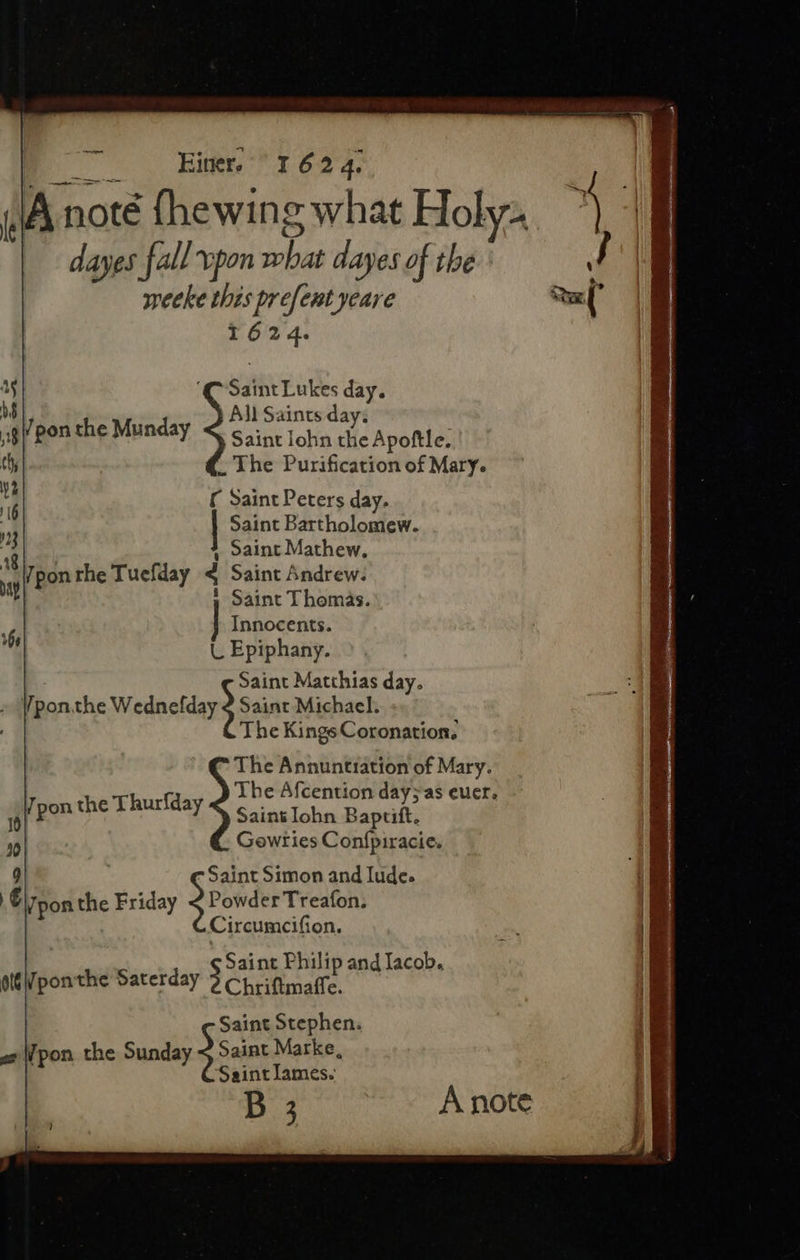 Einer. 1624.
A note ſhewing what Holy-
dayes fall vpon what dayes of the
weeke this preſent yeare
1624.
Saint Lukes day.
All Saints day.
Vpon the Munday
Saint Iohn the Apoſtle.
The Purification of Mary.
Saint Peters day.
Saint Bartholomew.
Saint Mathew.
Vpon the Tueſday Saint Andrew.
Saint Thomas.
Innocents.
Epiphany.
Saint Matthias day.
Vpon the Wedneſday Saint Michael.
The Kings Coronation.
The Annuntiation of Mary.
The Aſcention day, as euer.
Vpon the Thurſday
Saint Iohn Baptiſt.
Gowries Conſpiracie.
Saint Simon and Iude.
Vpon the Friday Powder Treaſon.
Circumciſion.
Saint Philip and Iacob.
Vpon the Saterday
Chriſtmaſſe.
Saint Stephen.
Vpon the Sunday Saint Marke.
Saint Iames.
B 3 A note